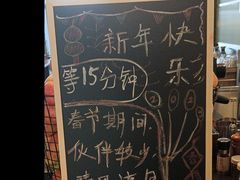 新年快乐
等15分钟
2023
春节期间
伙伴较少